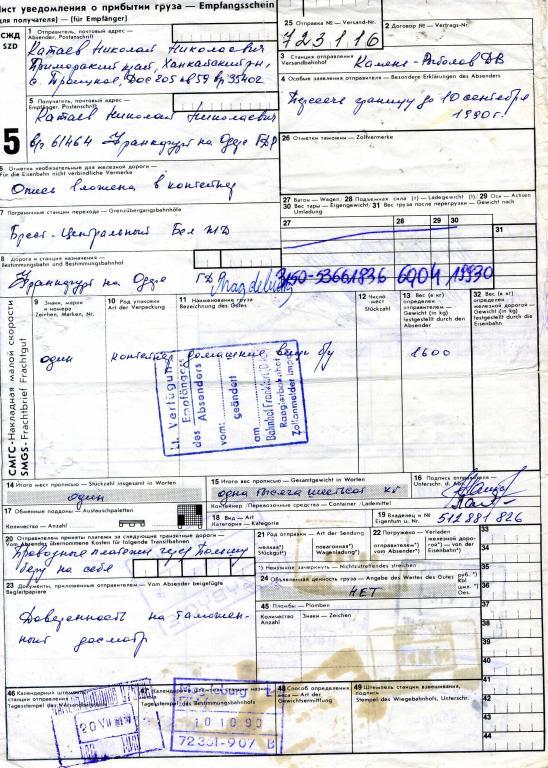 Лист уведомления о прибытии груза — Empfangsschein
(для получателя) — (für Empfänger)
СЖД
SZD
1 Отправитель, почтовый адрес — Absender, Postanschrift
Катаев Николай Николаевич
Приморский край, Ханкайский р-н,
Дос 205 кв 59 вр 35402
5 Получатель, почтовый адрес — Empfänger, Postanschrift
Катаев Николай Николаевич
вр 61464 Франкфурт на Одре ГДР
5
6 Отметки необязательные для железной дороги —
Für die Eisenbahn nicht verbindliche Vermerke
Опись вложена в контейнер
7 Пограничные станции перехода — Grenzübergangsbahnhöfe
Брест-Центральный Бел ЖД
8 Дорога и станция назначения —
Bestimmungsbahn und Bestimmungsbahnhof
Франкфурт на Одре ГДР Magdeburg
25 Отправка № — Versand-Nr.
723116
2 Договор № — Vertrags-Nr.
3 Станция отправления —
Versandbahnhof
Камень-Рыболов ДВ
4 Особые заявления отправителя — Besondere Erklärungen des Absenders
Пересечь границу до 10 сентября
1990г.
26 Отметки таможни — Zollvermerke
27 Вагон — Wagen 28 Подъемная сила (т) — Ladegewicht (t) 29 Оси — Achsen
30 Вес тары — Eigengewicht 31 Вес груза после перегрузки — Gewicht nach Umladung
27 28 29 30 31
СМГС-Накладная малой скорости
SMGS-Frachtbrief Frachtgut
9 Знаки, марки и номера
Zeichen, Marken, Nr.
10 Род упаковки
Art der Verpackung
11 Наименование груза
Bezeichnung des Gutes
12 Число мест
Stückzahl
13 Вес (в кг) определен отправителем —
Gewicht (in kg) festgestellt durch den Absender
32 Вес (в кг) определен железной дорогой —
Gewicht (in kg) festgestellt durch die Eisenbahn
один контейнер домашние вещи б/у 1600
Lt. Verfügung
Empfängers
des Absenders
vom:
geändert
am
Bahnhof Frankfurt
14 Итого мест прописью — Stückzahl insgesamt in Worten
один
15 Итого вес прописью — Gesamtgewicht in Worten
одна тысяча шестьсот кг
16 Подпись отправителя —
Unterschr. d. Abs.
17 Обменные поддоны — Austauschpaletten
Количество — Anzahl
Контейнер / Перевозочные средства — Container / Lademittel
18 Вид — Art
Категория — Kategorie
19 Владелец и № —
Eigentum u. Nr.
512881826
20 Отправителем приняты платежи за следующие транзитные дороги —
Vom Absender übernommene Kosten für folgende Transitbahnen
Проводные платежи через Польшу
беру на себя
21 Род отправки — Art der Sendung
мелкая*)
Stückgut*)
повагонная*)
Wagenladung*)
22 Погружено — Verladen
отправителем*) —
vom Absender*)
железной дорогой*) — von der Eisenbahn*)
*) Ненужное зачеркнуть — Nichtzutreffendes streichen
23 Документы, приложенные отправителем — Vom Absender beigefügte Begleitpapiere
Доверенность на таможен-
ный досмотр
24 Объявленная ценность груза — Angabe des Wertes des Gutes
руб.
Rbl
Коп.
нет
45 Пломбы — Plomben
Количество
Anzahl
Знаки — Zeichen
33
34
35
36
37
38
39
40
41
42
43
44
46 Календарный штемпель станции отправления —
Tagesstempel des Versandbahnhofs
47 Календарный штемпель станции назначения —
Tagesstempel des Bestimmungsbahnhofs
Magdeburg
10 10 90
72351-907 B
48 Способ определения веса — Art der Gewichtsermittlung
49 Штемпель станции взвешивания, подпись
Stempel des Wiegebahnhofs, Unterschr.